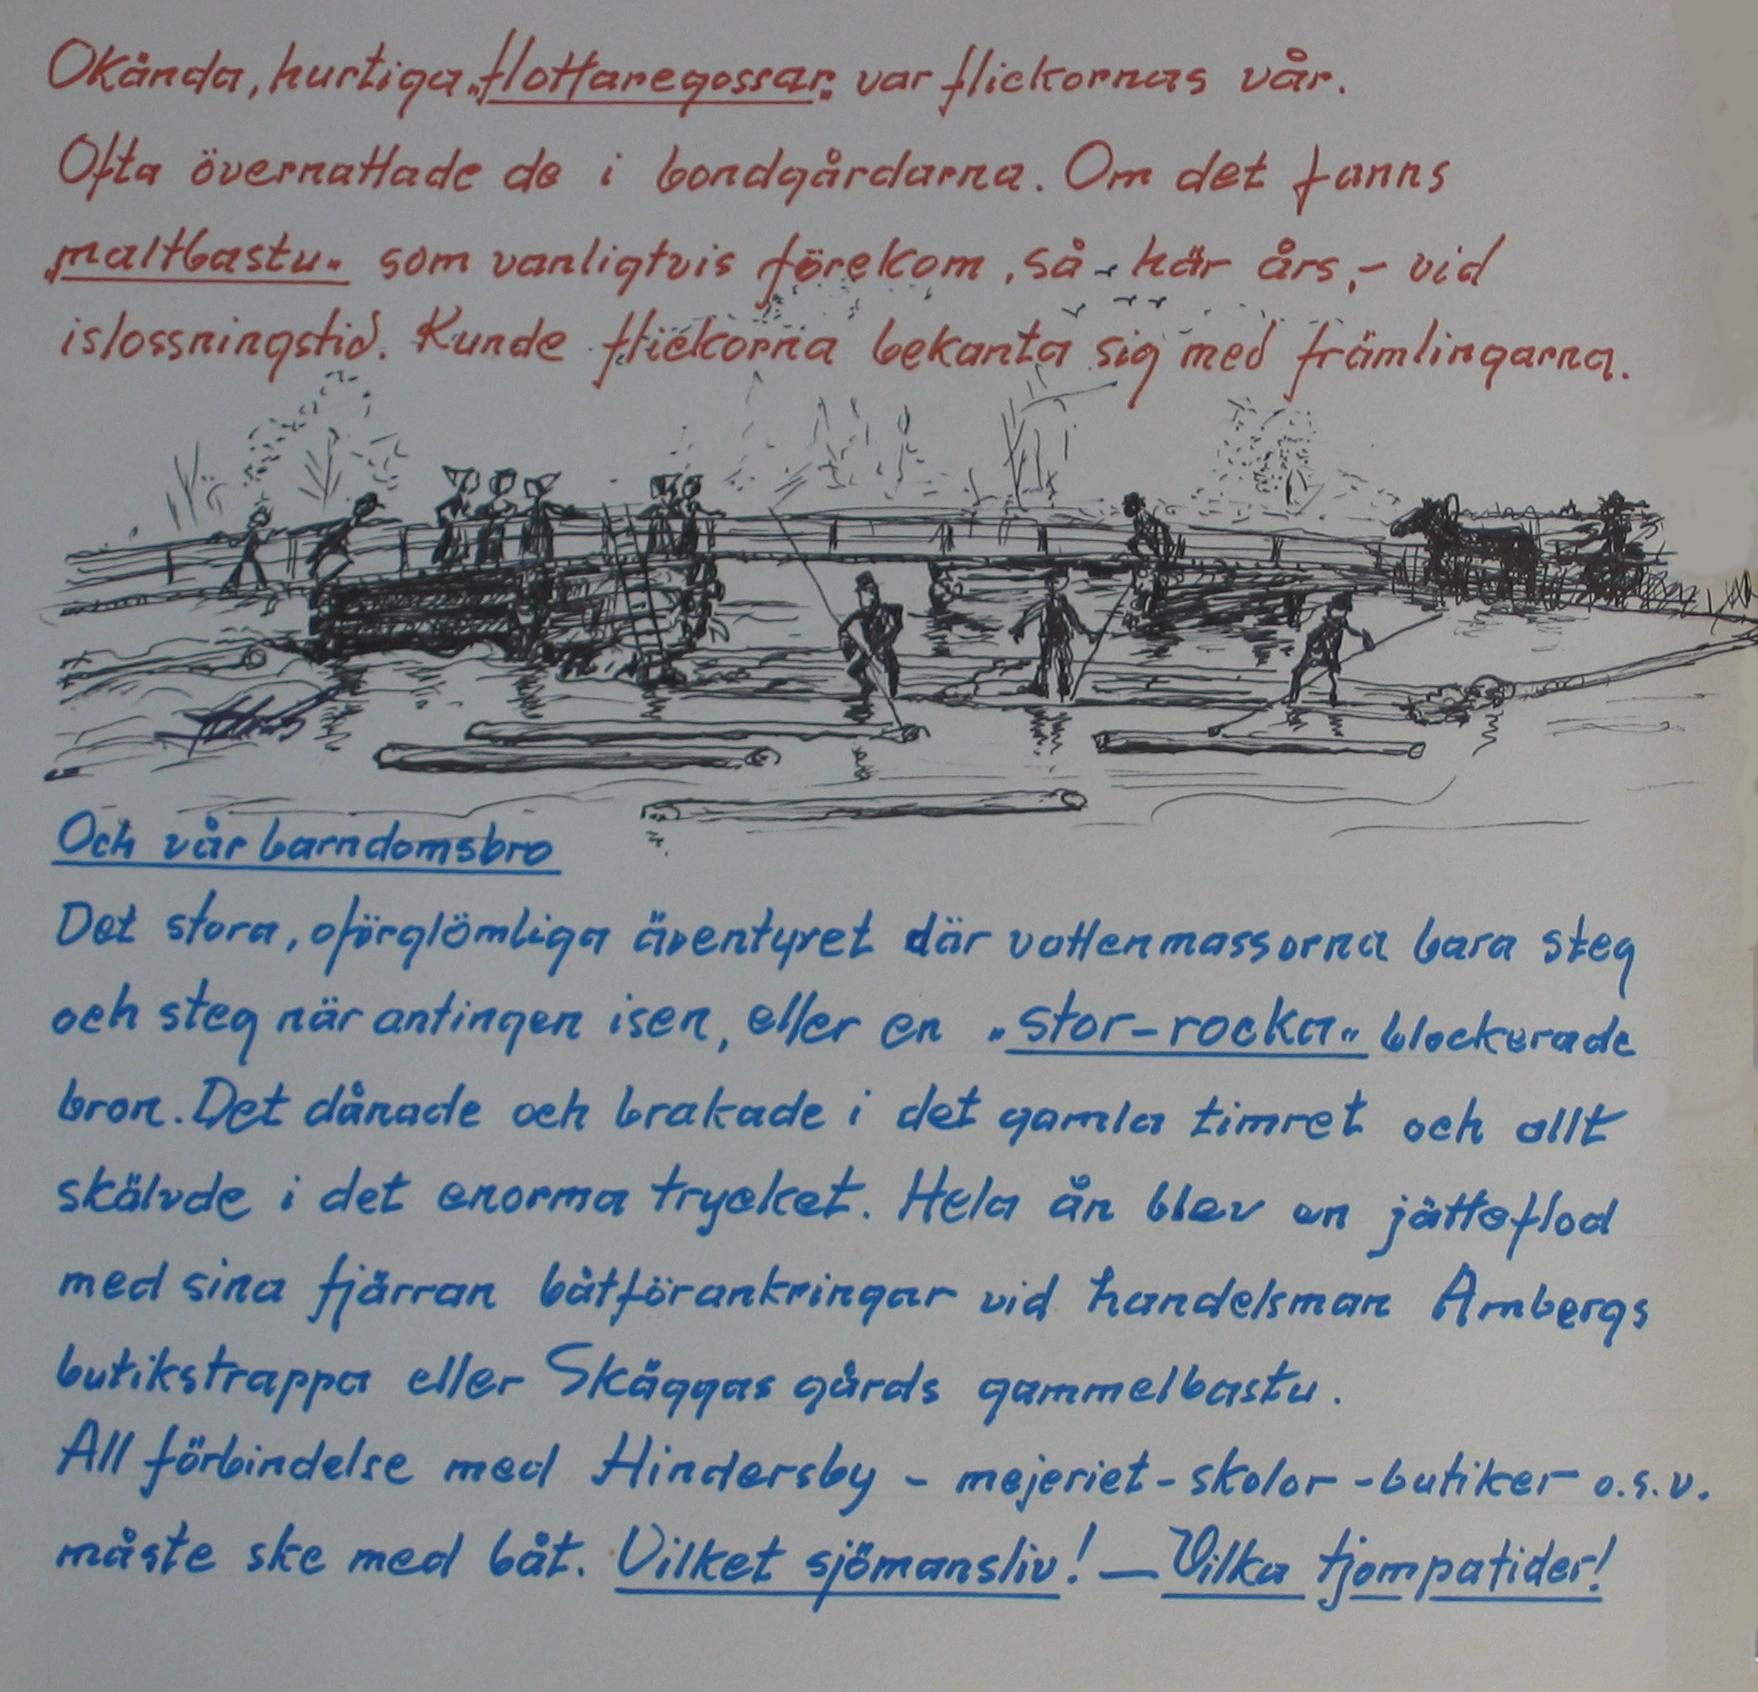 Okända, hurtiga „flottaregossar„ var flickornas vår.
Ofta övernattade de i bondgårdarna. Om det fanns
„maltbastu„ som vanligtvis förekom, så - här års, - vid
islossningstid. Kunde flickorna bekanta sig med främlingarna.
Och vår barndomsbro
Det stora, oförglömliga äventyret där vattenmassorna bara steg
och steg när antingen isen, eller en „stor-rocka„ blockerade
bron. Det dånade och brakade i det gamla timret och allt
skälvde i det enorma trycket. Hela ån blev en jätteflod
med sina fjärran båtförankringar vid handelsman Ambergs
butikstrappa eller Skäggas gårds gammelbastu.
All förbindelse med Hindersby - mejeriet - skolor - butiker o.s.v.
måste ske med båt. Vilket sjömansliv! — Vilka tjompatider!